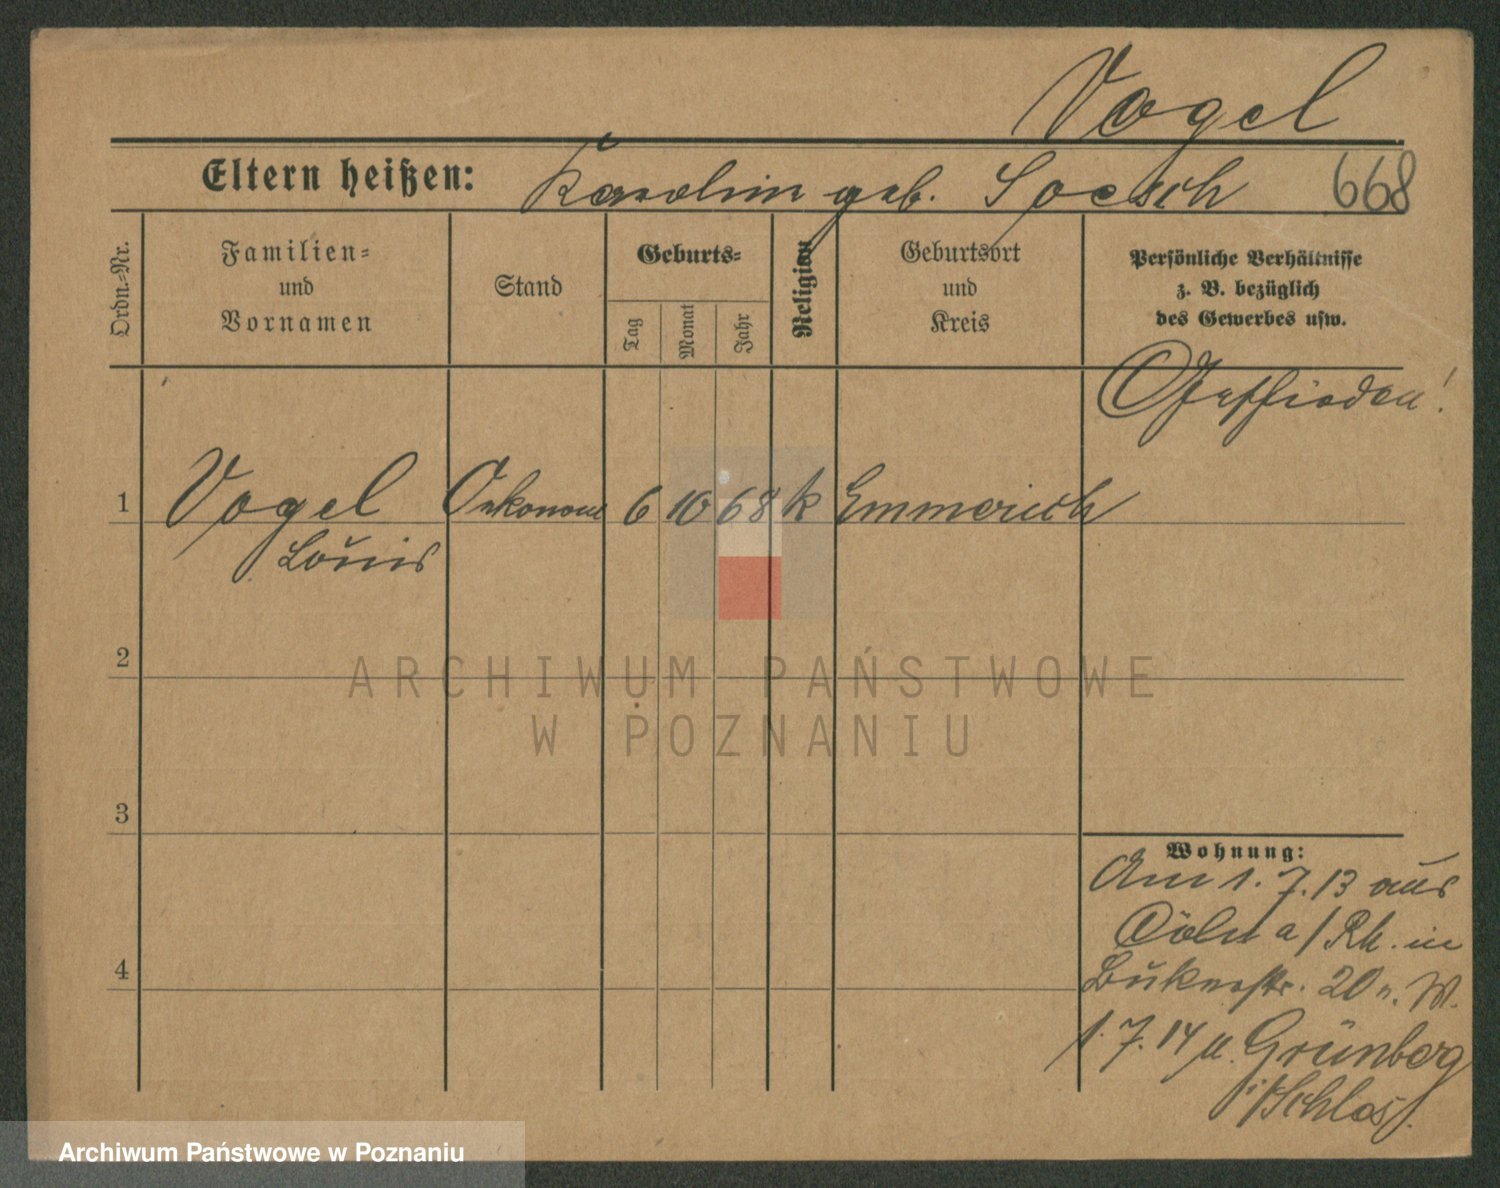 Vogel
Eltern heißen: Karolin geb. Soesch 668
Ordn.-Nr.
Familien-
und
Vornamen
Stand
Geburts-
Tag
Monat
Jahr
Religion
Geburtsort
und
Kreis
Persönliche Verhältnisse
z. B. bezüglich
des Gewerbes usw.
Geschieden!
1 Vogel Oekonom 6 10 68 k Emmerich
Louis
2
3
4
Wohnung:
Am 1. 7. 13 aus
Cöln a/Rh. in
Bukerstr. 20 n. W.
1. 7. 14 n. Grünberg
i/Schles.
ARCHIWUM PAŃSTWOWE
W POZNANIU
Archiwum Państwowe w Poznaniu